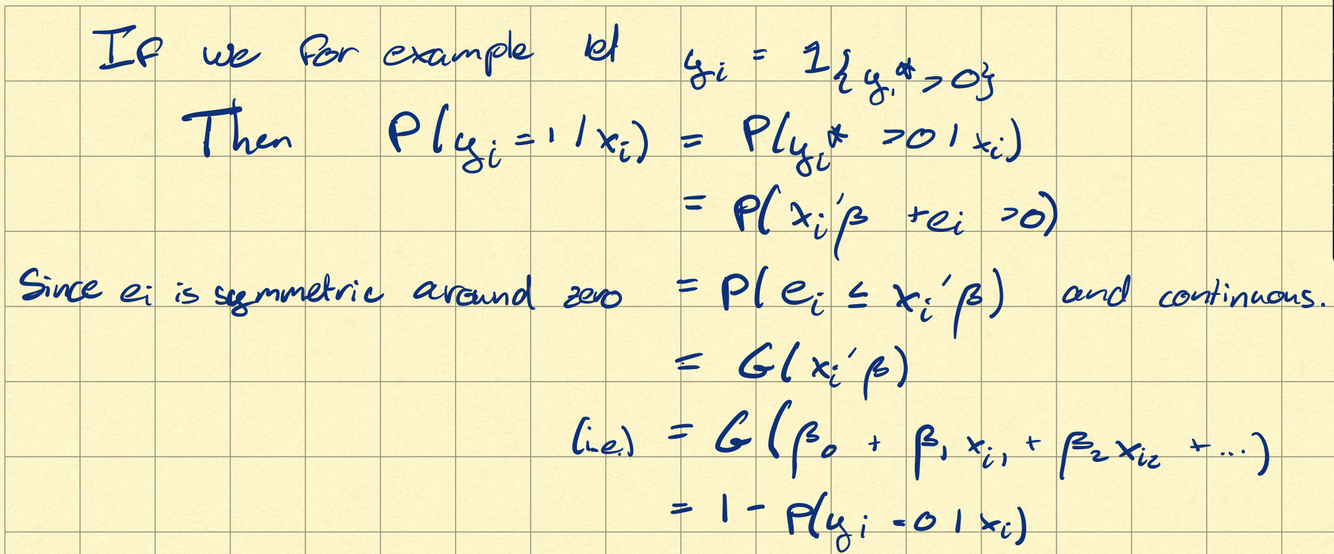 If we for example let yᵢ = 1{yᵢ* > 0}
Then P(yᵢ = 1 | xᵢ) = P(yᵢ* > 0 | xᵢ)
= P(xᵢ'β + eᵢ > 0)
Since eᵢ is symmetric around zero = P(eᵢ ≤ xᵢ'β) and continuous.
= G(xᵢ'β)
(i.e.) = G(β₀ + β₁ xᵢ₁ + β₂ xᵢ₂ + ...)
= 1 - P(yᵢ = 0 | xᵢ)